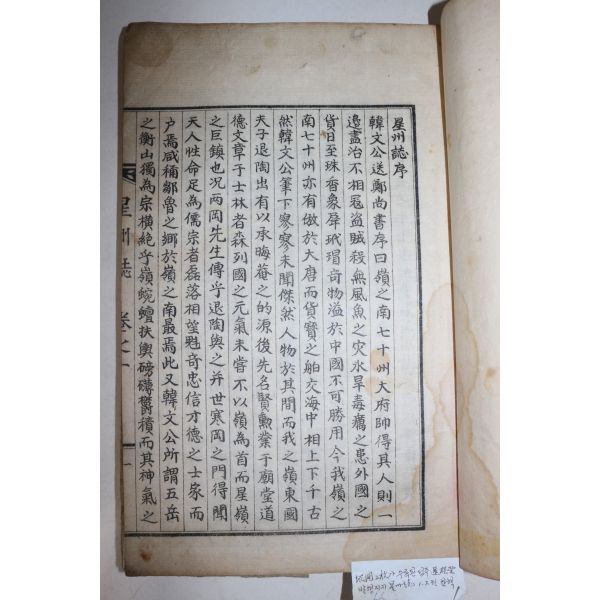 星州誌序
韓文公送鄭尚書序曰嶺之南七十州大府帥得其人則一
邊盡治不相寇盜賊殺無風魚之灾水旱毒癘之患外國之
貨日至珠香象犀玳瑁奇物溢於中國不可勝用今我嶺之
南七十州亦有倣於大唐而貨寶之舶交海中相上下千古
然韓文公筆下寥寥未聞傑然人物於其間而我之嶺東國
夫子退陶出有以承晦菴之的源後先名賢勲業于廟堂道
德文章于士林者森列國之元氣未嘗不以嶺為首而星嶺
之巨鎮也况兩岡先生傳乎退陶與之并世寒岡之門得聞
天人性命足為儒宗者磊落相望魁奇忠信才德之士家而
户焉咸稱鄒魯之鄉於嶺之南最焉此又韓文公所謂五岳
之衡山獨為宗橫絶乎嶺蜿蟺扶輿磅礴欝積而其神氣之
星州誌 卷之一
一